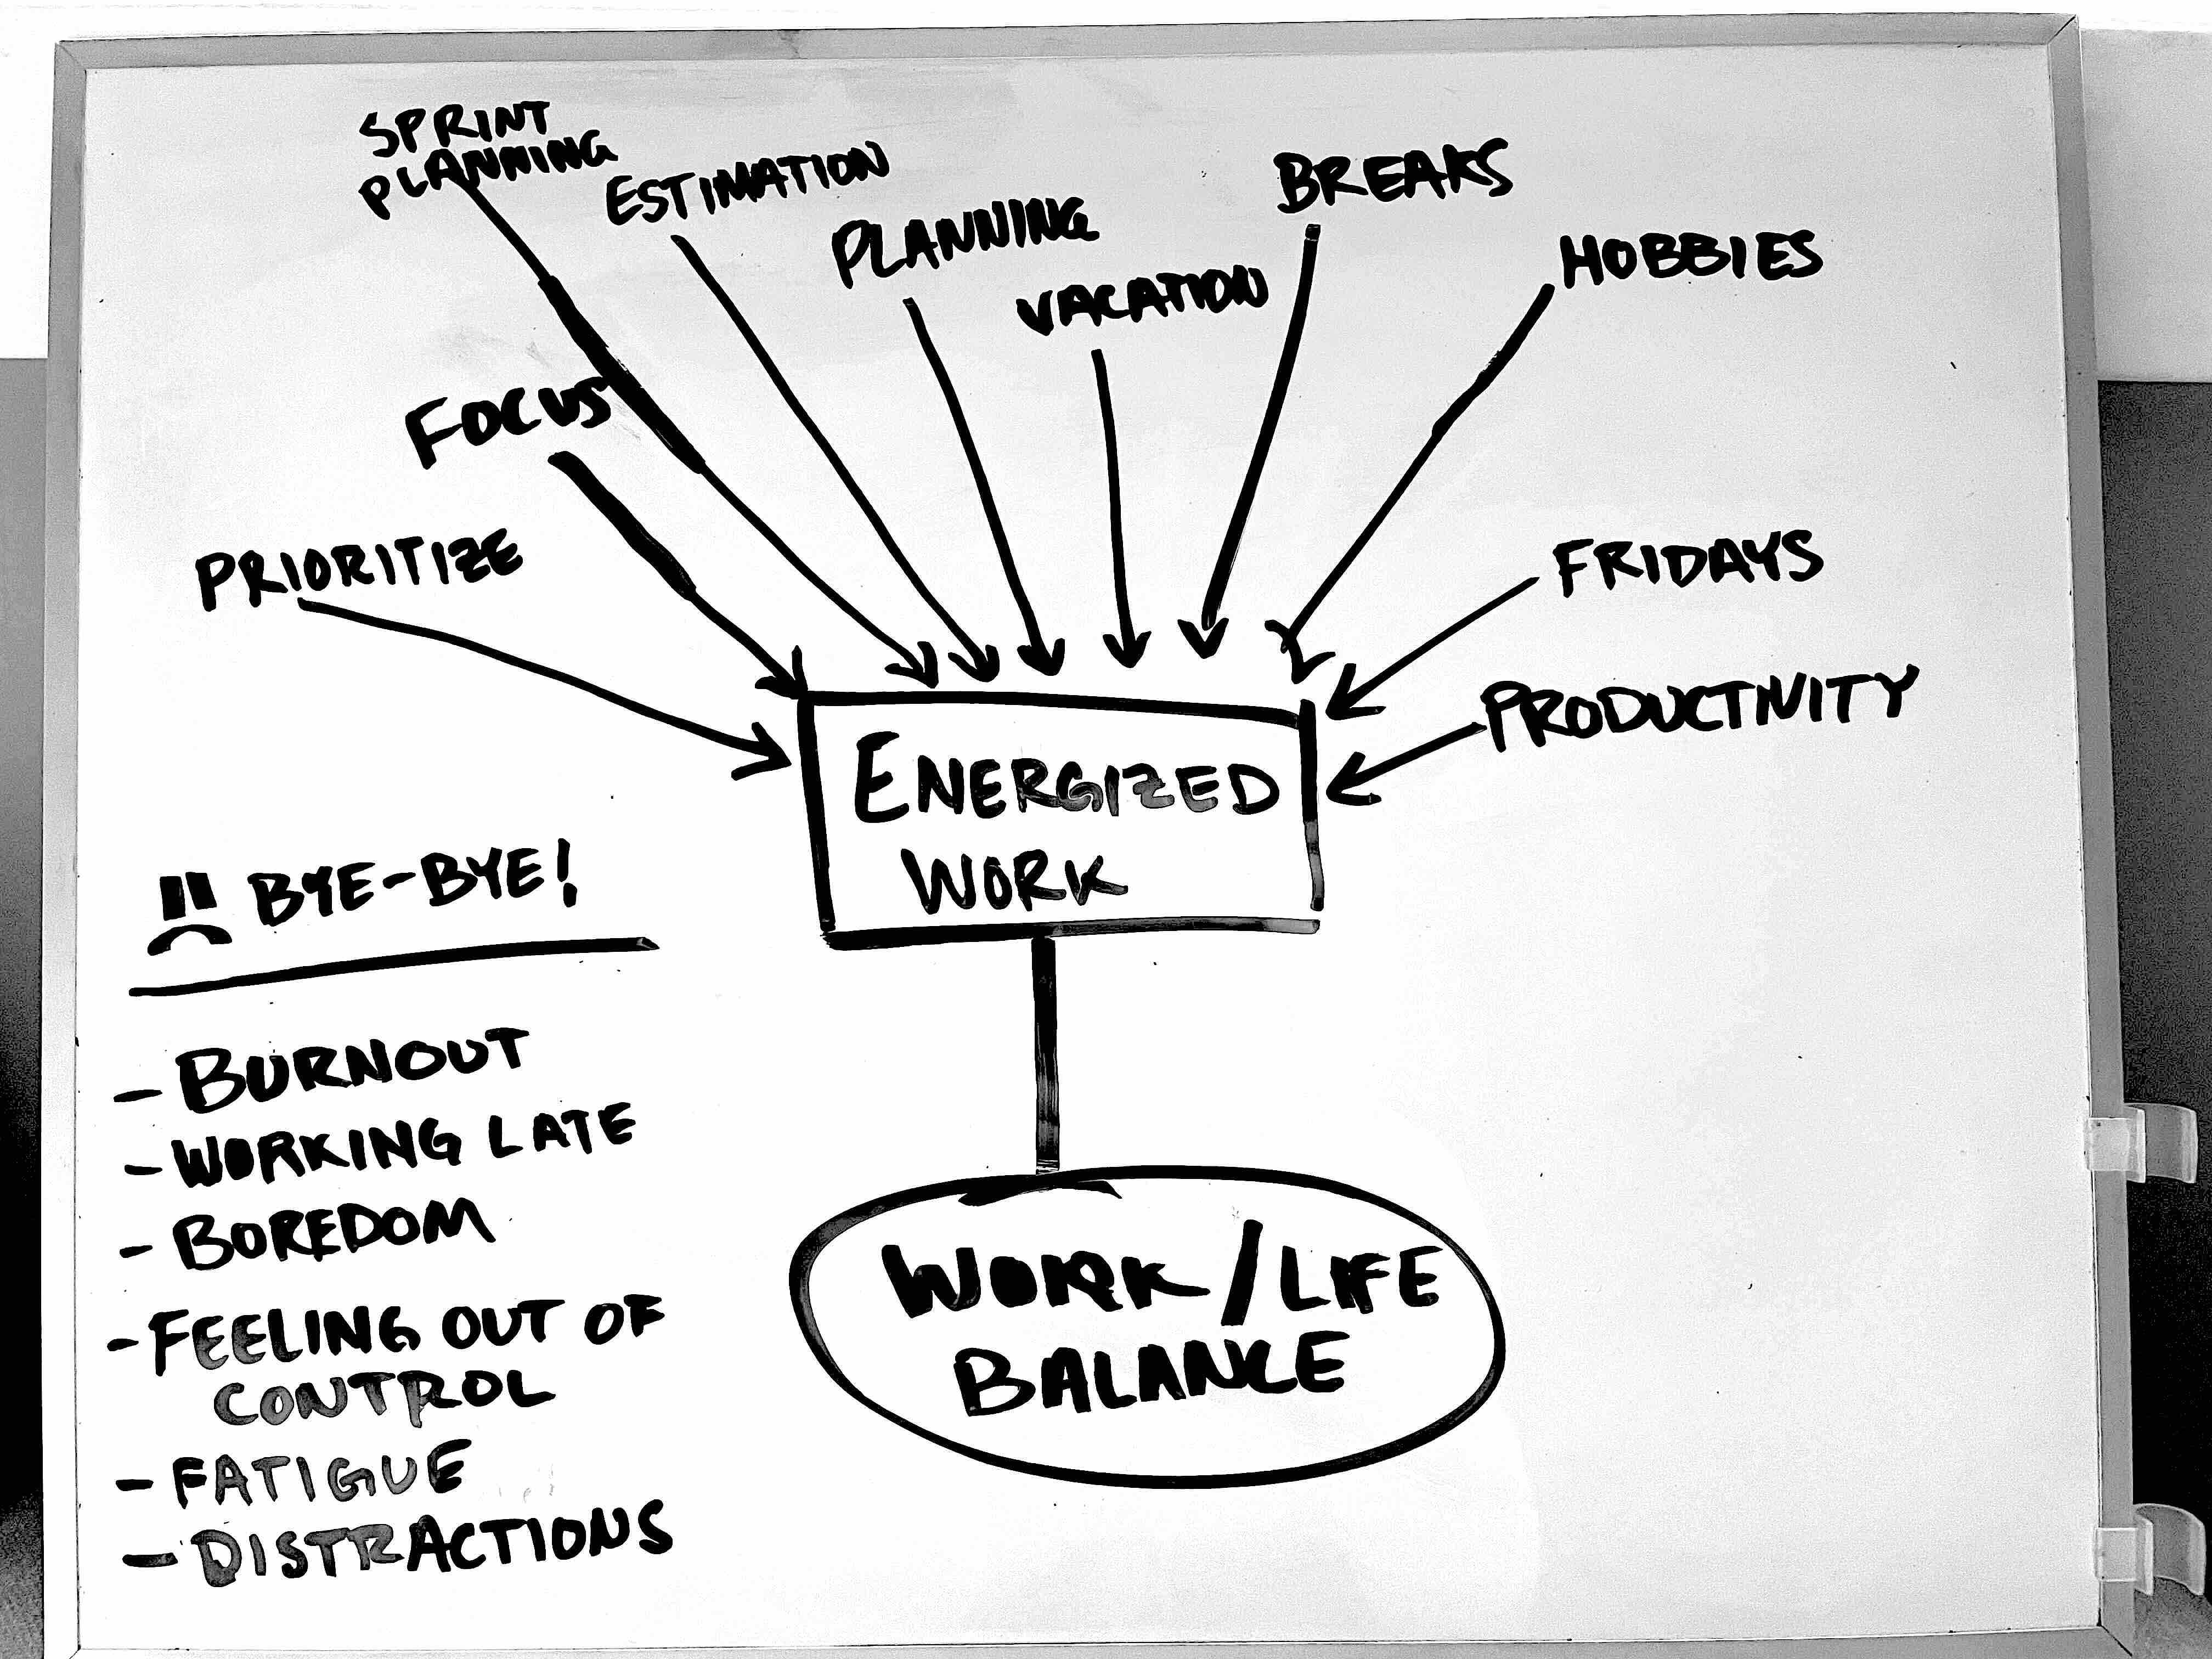 SPRINT
PLANNING
ESTIMATION
PLANNING
VACATION
BREAKS
HOBBIES
FOCUS
PRIORITIZE
FRIDAYS
PRODUCTIVITY
ENERGIZED
WORK
BYE-BYE!
- BURNOUT
- WORKING LATE
- BOREDOM
- FEELING OUT OF
CONTROL
- FATIGUE
- DISTRACTIONS
WORK/LIFE
BALANCE